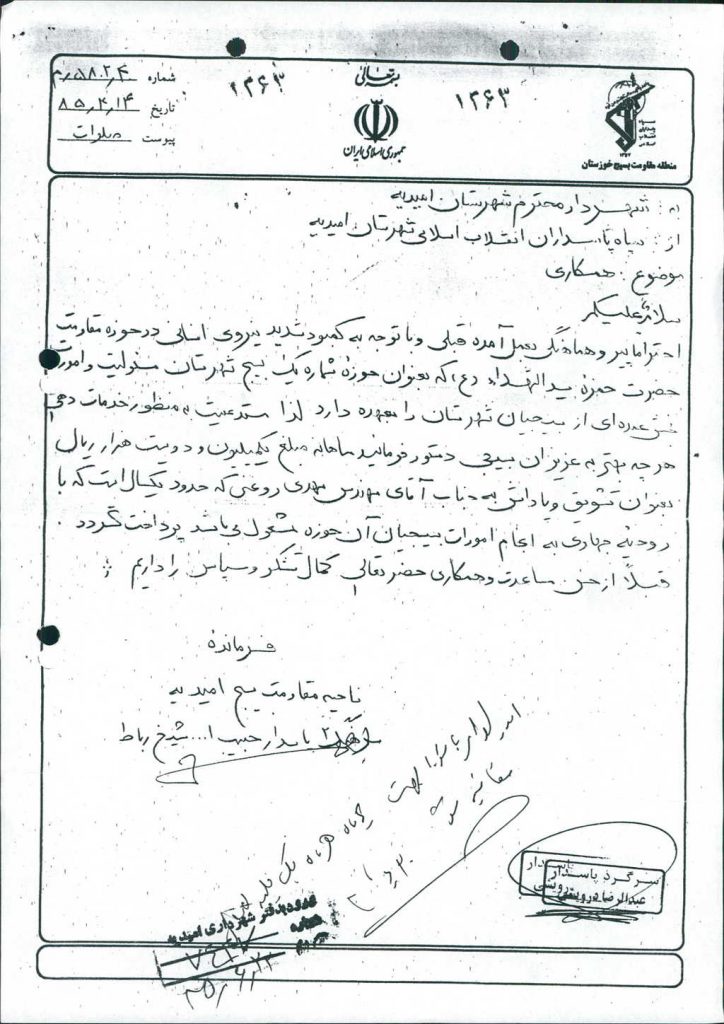 بسمه تعالی
جمهوری اسلامی ایران
منطقه مقاومت بسیج خوزستان
۱۳۶۳
۱۳۶۳
شماره
تاریخ ۸۵٫۴٫۱۴
پیوست
به : شهردار محترم شهرستان امیدیه
از : سپاه پاسداران انقلاب اسلامی شهرستان امیدیه
موضوع : همکاری
سلام علیکم
احتراما پیرو هماهنگی بعمل آمده قبلی و با توجه به کمبود شدید نیروی انسانی در حوزه مقاومت
حضرت حمزه سید الشهداء (ع) که بعنوان حوزه شماره یک بسیج شهرستان مسئولیت و امورات
بخش عمده ای از بسیجیان شهرستان را بعهده دارد لذا مستدعیست به منظور خدمات دهی
هر چه بهتر به عزیزان بسیجی دستور فرمائید ماهانه مبلغ یکمیلیون و دویست هزار ریال
بعنوان تشویق و پاداش به جناب آقای مهندس مهدی روغنی که حدود یکسال است که با
روحیه جهادی به انجام امورات بسیجیان آن حوزه مشغول می باشد پرداخت گردد .
قبلاً از حسن مساعدت و همکاری حضرتعالی کمال تشکر و سپاس را داریم
فرمانده
ناحیه مقاومت بسیج امیدیه
پاسدار حبیب ا... شیخ رباط
سرگرد پاسدار
عبدالرضا درویشی
ورود به دفتر شهرداری امیدیه
شماره